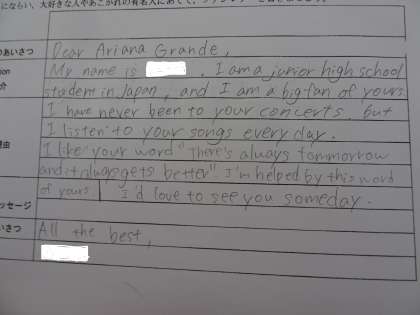 にならい、大好きな人やあこがれの有名人にあてて、ファンレターを
のあいさつ
Dear Ariana Grande,
ion
介
My name is . I am a junior high school
student in Japan, and I am a big fan of yours
I have never been to your concerts, but
I listen to your songs every day.
理由
I like your word "There's always tommorrow
and it always gets better" I'm helped by this word
of yours. I'd love to see you someday.
ッセージ
いさつ
All the best,